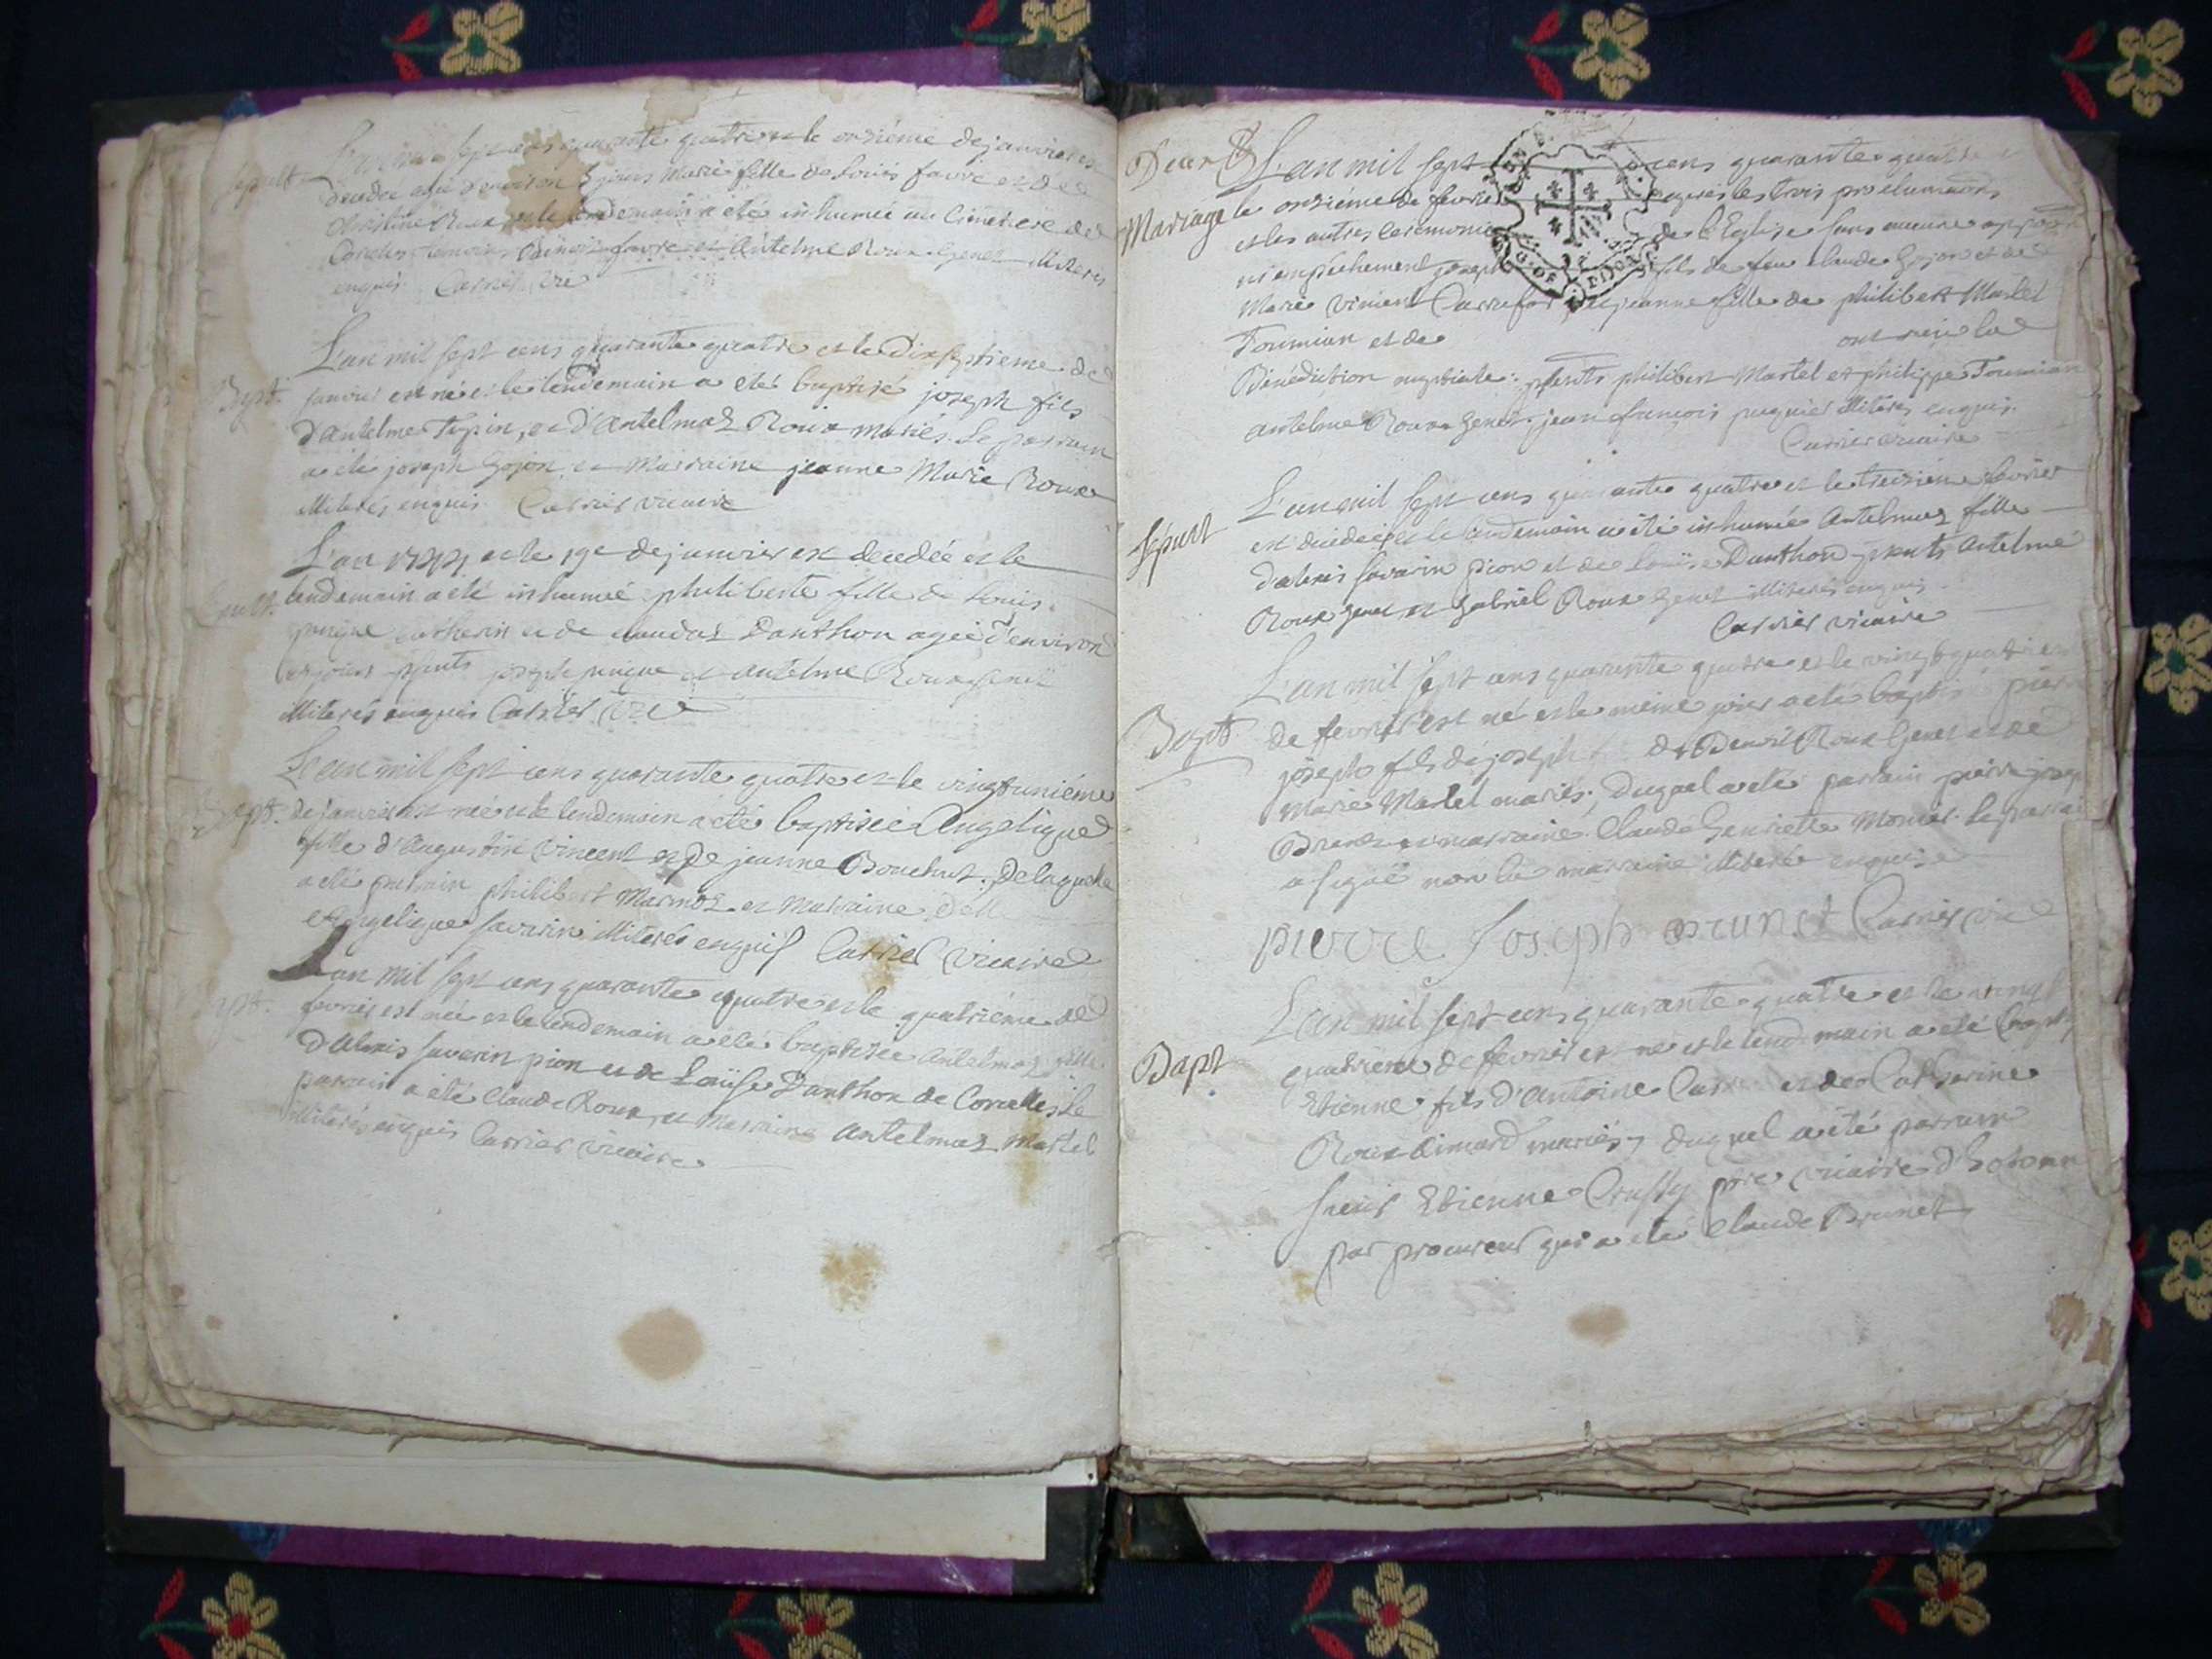 sepult.
sept cens quarante quatre et le onzième de janvier est
decedee agée d'environ 3 jours Marie fille de Louis favre et de
Christine Roux et le lendemain a eté inhumée au Cimetiere de
Corcelles temoins Benoit favre et Antelme Roux Genet illiterés
enquis Carrier vre
L'an mil sept cens quarante quatre et le dix septieme de
Bapt. janvier est né et le lendemain a eté baptisé joseph fils
d'Antelme Tupin, et d'Antelmaz Roux mariés. Le parrain
a eté joseph Gojon et Marraine jeanne Marie Roux
illiterés enquis Carrier vicaire
L'an 1744 et le 19e de janvier est decedée et le
lendemain a eté inhumée philiberte fille de Louis
et de claudaz Danthon agée d'environ
jours psents joseph et antelme Roux Genet
illiterés enquis Carrier vre
L'an mil sept cens quarante quatre et le vingt unième
Bapt. de janvier est née et le lendemain a eté baptisée Angelique
fille d'Augustin Vincent et de jeanne Bouchut. De laquelle
a eté parrain philibert Marmoz et Marraine Delle
Angelique savarin illiterés enquis Carrier Vicaire
L'an mil sept cens quarante quatre et le quatrième de
Bapt. fevrier est née et le lendemain a eté baptisée Antelmaz fille
D'Alexis savarin pion et de Louise Danthon de Corcelles Le
parrain a eté Claude Roux, et Marraine Antelmaz Martel
illiterés enquis Carrier vicaire
L'an mil sept cens quarante quatre
Mariage le onzième de fevrier après les trois proclamations
et les autres Ceremonies de l'Eglise sans aucune
ni empêchement joseph fils de feu claude Gojon et de
Marie Vincent Carrefor et jeanne fille de philibert Martel
Toumian et de ont reçu la
Bénédiction nuptiale: psents philibert Martel et philippe Toumian
antelme Roux Genet. jean francois pugnier illiterés enquis.
Carrier vicaire
L'an mil sept cens quarante quatre et le treizième fevrier
Sepult est decedée et le lendemain a eté inhumée Antelmaz fille
d'alexis savarin pion et de Louise Danthon psents Antelme
Roux Genet et Gabriel Roux Genet illiterés enquis
Carrier vicaire
L'an mil sept cens quarante quatre et le vingt quatrie
Bapt. de fevrier est né et le même jour a eté baptisé pierre
joseph fils de joseph de Benoit Roux Genet et de
Marie Martel mariés, Duquel a eté parrain pierre joseph
Brunet et marraine Claude Henriette Monier. Le parrain
a signé non la marraine illiterée enquise
pierre Joseph brunet Carrier vre
L'an mil sept cens quarante quatre et le vingt
Bapt quatrieme de fevrier est né et le lendemain a eté bapt
Etienne fils d'Antoine et de Catherine
Roux aimard mariés, duquel a eté parrain
Etienne Crussy ptre vicaire d'hotonne
par procureur qui a eté Claude Brunet